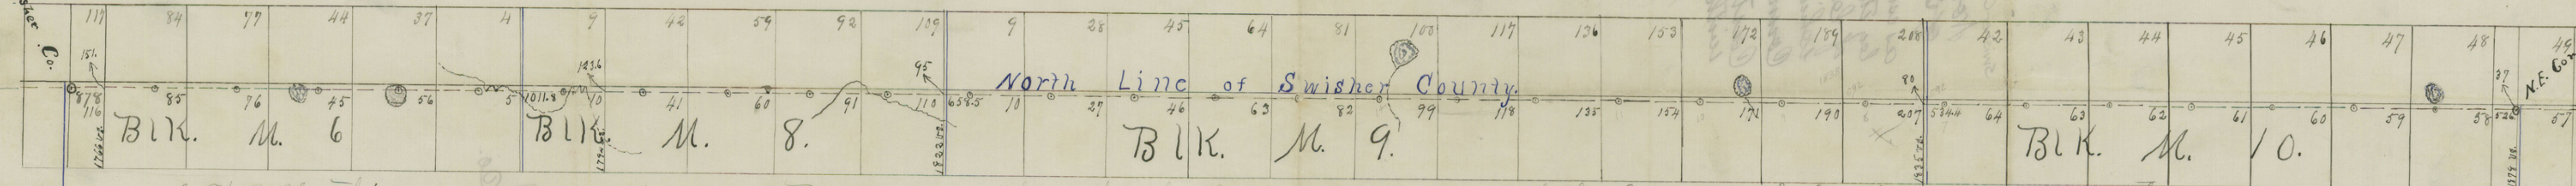 117 84 77 44 37 4 9 42 59 92 109 9 28 45 64 81 100 117 136 153 172 189 208 42 43 44 45 46 47 48 49
Co.
151. 1236 95 80 37
North Line of Swisher County.
N.E. Cor.
878 1011.8 658.5 534.4
116 85 76 45 56 5 10 41 60 91 110 10 27 46 63 82 99 118 135 154 171 190 207 64 63 62 61 60 59 58 57
Blk. M. 6 Blk. M. 8. Blk. M. 9. Blk. M. 10.